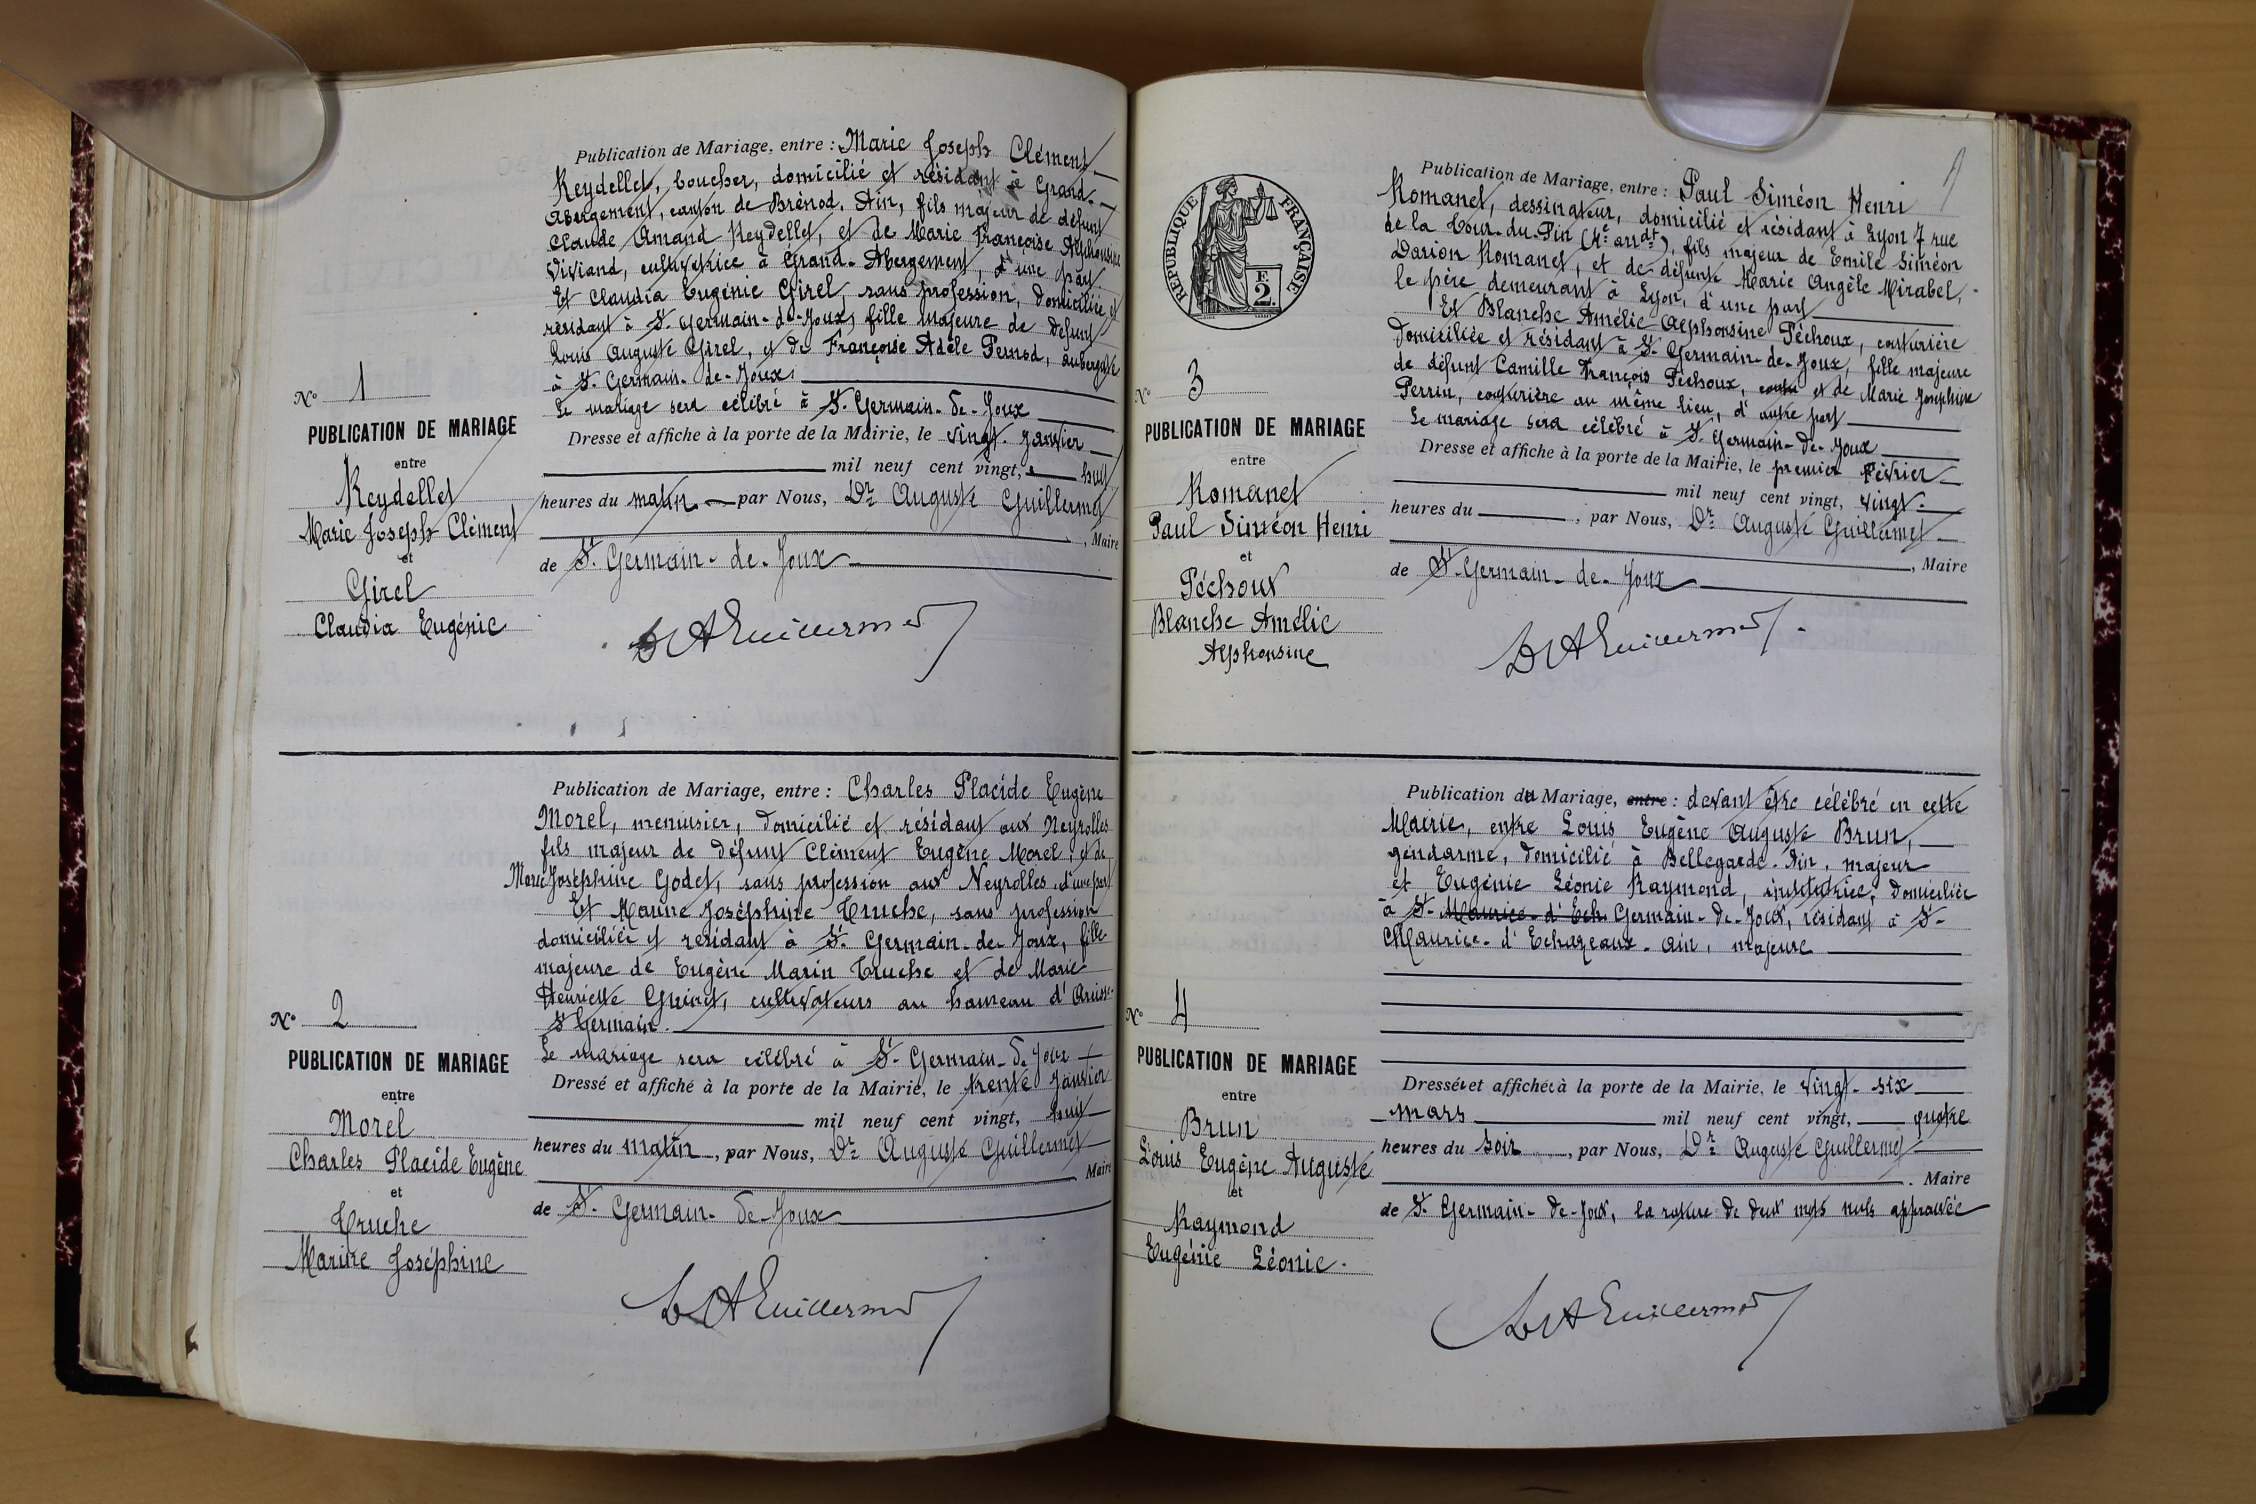 Publication de Mariage, entre : Marie Joseph Clément
Reydellet, boucher, domicilié et résidant à Grand-
Abergement, canton de Brénod, Ain, fils majeur de défunt
Claude Amand Reydellet, et de Marie Françoise Alphonsine
Viviand, cultivatrice à Grand-Abergement, d'une part.
Et Claudia Eugénie Girel, sans profession, domiciliée et
résidant à St Germain-de-Joux, fille majeure de défunt
Louis Auguste Girel, et de Françoise Adèle Pernod, aubergiste
à St Germain-de-Joux.
Le mariage sera célébré à St Germain-de-Joux
Dresse et affiche à la porte de la Mairie, le vingt janvier
mil neuf cent vingt, huit
heures du matin par Nous, Dr Auguste Guillermet
, Maire
de St Germain-de-Joux
Dr A Guillermet
No 1
PUBLICATION DE MARIAGE
entre
Reydellet
Marie Joseph Clément
et
Girel
Claudia Eugénie
Publication de Mariage, entre : Charles Placide Eugène
Morel, menuisier, domicilié et résidant aux Neyrolles
fils majeur de défunt Clément Eugène Morel, et de
Marie Joséphine Godet, sans profession aux Neyrolles, d'une part
Et Marine Joséphine Truche, sans profession
domiciliée et résidant à St Germain-de-Joux, fille
majeure de Eugène Marin Truche et de Marie
Henriette Guinet, cultivateurs au hameau d'
St Germain.
Le mariage sera célébré à St Germain-de Joux
Dressé et affiché à la porte de la Mairie, le trente janvier
mil neuf cent vingt, huit
heures du matin, par Nous, Dr Auguste Guillermet
Maire
de St Germain-de-Joux
Dr A Guillermet
No 2
PUBLICATION DE MARIAGE
entre
Morel
Charles Placide Eugène
et
Truche
Marine Joséphine
RÉPUBLIQUE FRANÇAISE
F.
2.
Publication de Mariage, entre : Paul Siméon Henri
Romanet, dessinateur, domicilié et résidant à Lyon 7 rue
de la Tour-du-Pin (4e arrdt), fils majeur de Emile Siméon
Darion Romanet, et de défunte Marie Angèle Mirabel,
le père demeurant à Lyon, d'une part
Et Blanche Amélie Alphonsine Péchoux, couturière
domiciliée et résidant à St Germain-de-Joux, fille majeure
de défunt Camille François Péchoux, et de Marie Joséphine
Perrin, couturière au même lieu, d'autre part
Le mariage sera célébré à St Germain-de-Joux
Dresse et affiche à la porte de la Mairie, le premier Février
mil neuf cent vingt, vingt
heures du , par Nous, Dr Auguste Guillermet
, Maire
de St Germain-de-Joux
Dr A Guillermet
No 3
PUBLICATION DE MARIAGE
entre
Romanet
Paul Siméon Henri
et
Péchoux
Blanche Amélie
Alphonsine
Publication du Mariage, entre : devant être célébré en cette
Mairie, entre Louis Eugène Auguste Brun,
gendarme, domicilié à Bellegarde-Ain, majeur
et Eugénie Léonie Raymond, institutrice, domiciliée
à St Maurice-d'Ech Germain-de-Joux, résidant à St-
Maurice-d'Echazeaux-Ain, majeure
Dressé et affiché à la porte de la Mairie, le vingt-six
mars mil neuf cent vingt, quatre
heures du soir, par Nous, Dr Auguste Guillermet
. Maire
de St Germain-de-Joux, la rature de deux mots nuls approuvée
Dr A Guillermet
No 4
PUBLICATION DE MARIAGE
entre
Brun
Louis Eugène Auguste
et
Raymond
Eugénie Léonie.